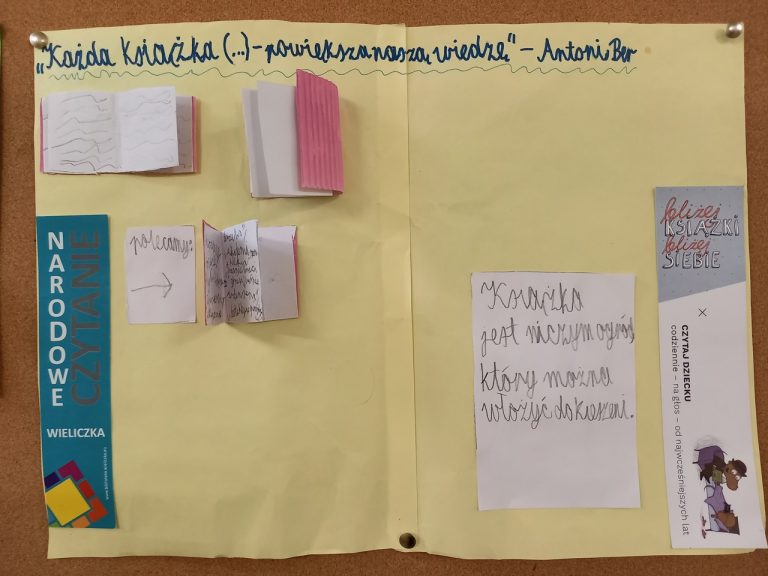 „Każda książka (...) - powiększa naszą wiedzę" - Antoni Ber
NARODOWE
CZYTANIE
WIELICZKA
polecamy:
Książka
jest niczym ogród,
który można
włożyć do kieszeni.
bliżej
KSIĄŻKI
bliżej
SIEBIE
X
CZYTAJ DZIECKU
codziennie – na głos – od najwcześniejszych lat